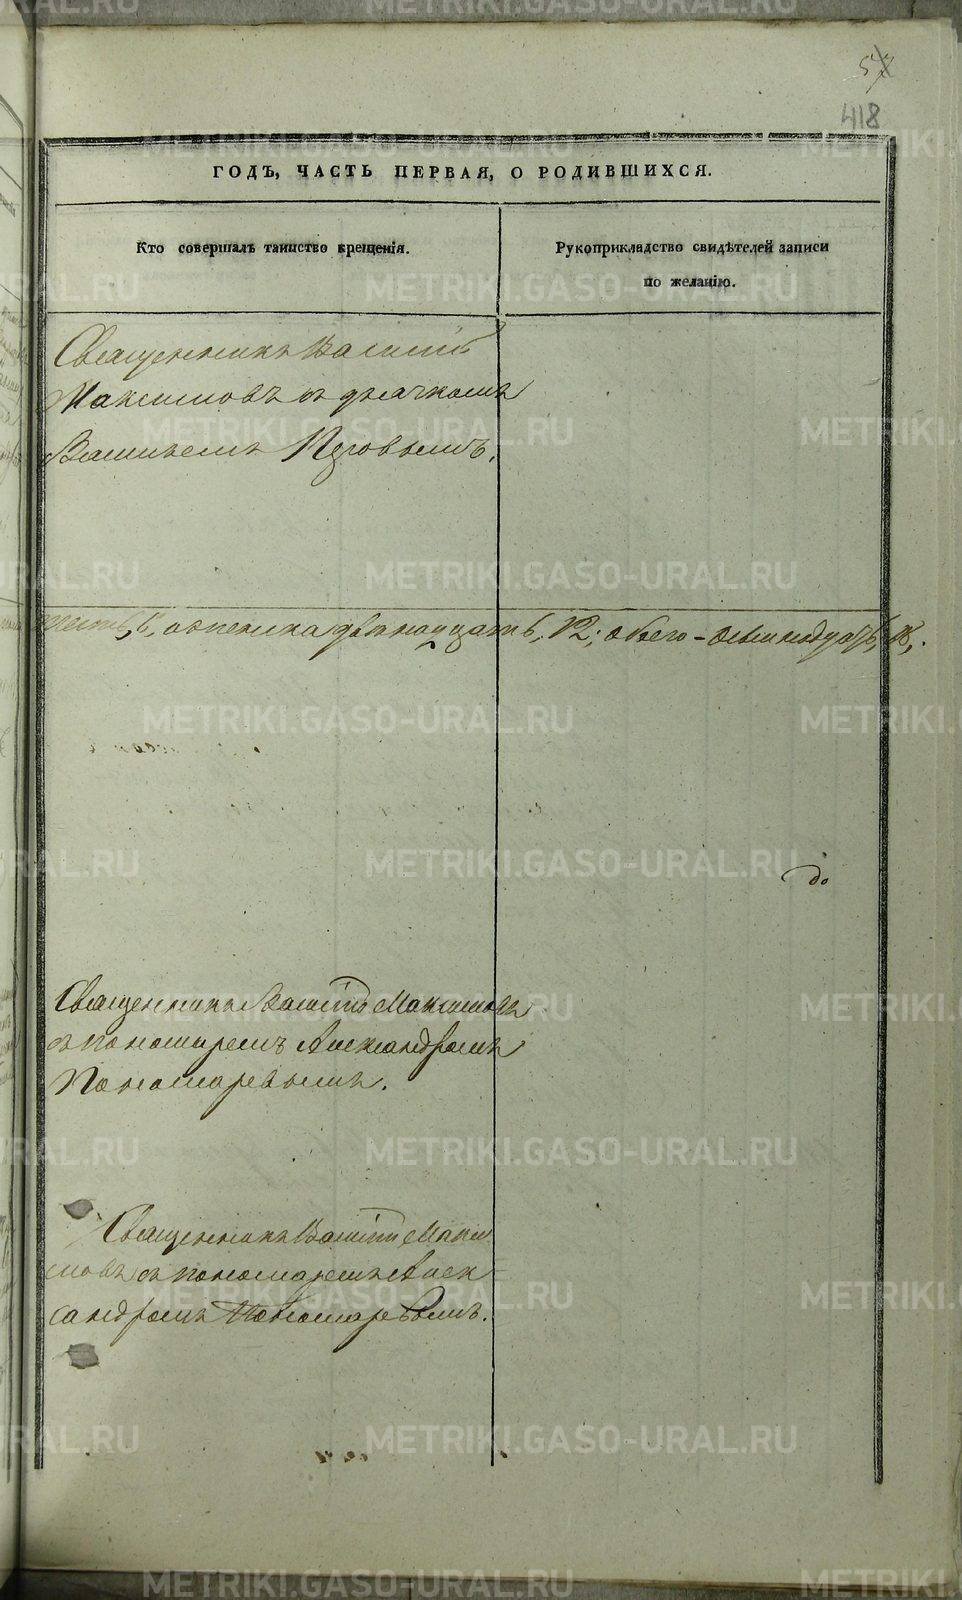 57
418
ГОДЪ, ЧАСТЬ ПЕРВАЯ, О РОДИВШИХСЯ.
Кто совершалъ таинство крещенія.
Рукоприкладство свидѣтелей записи
по желанію.
Священникъ Василій
Максимовъ съ дьячкомъ
Васильемъ
женска двѣнадцать, 12; обоего - осьмнадцать, 18,.
до
Священникъ Василій Максимовъ
съ пономаремъ Александромъ
Пономаревымъ.
Священникъ Василій Макси
мовъ съ пономаремъ Алек-
сандромъ Пономаревымъ.
METRIKI.GASO-URAL.RU